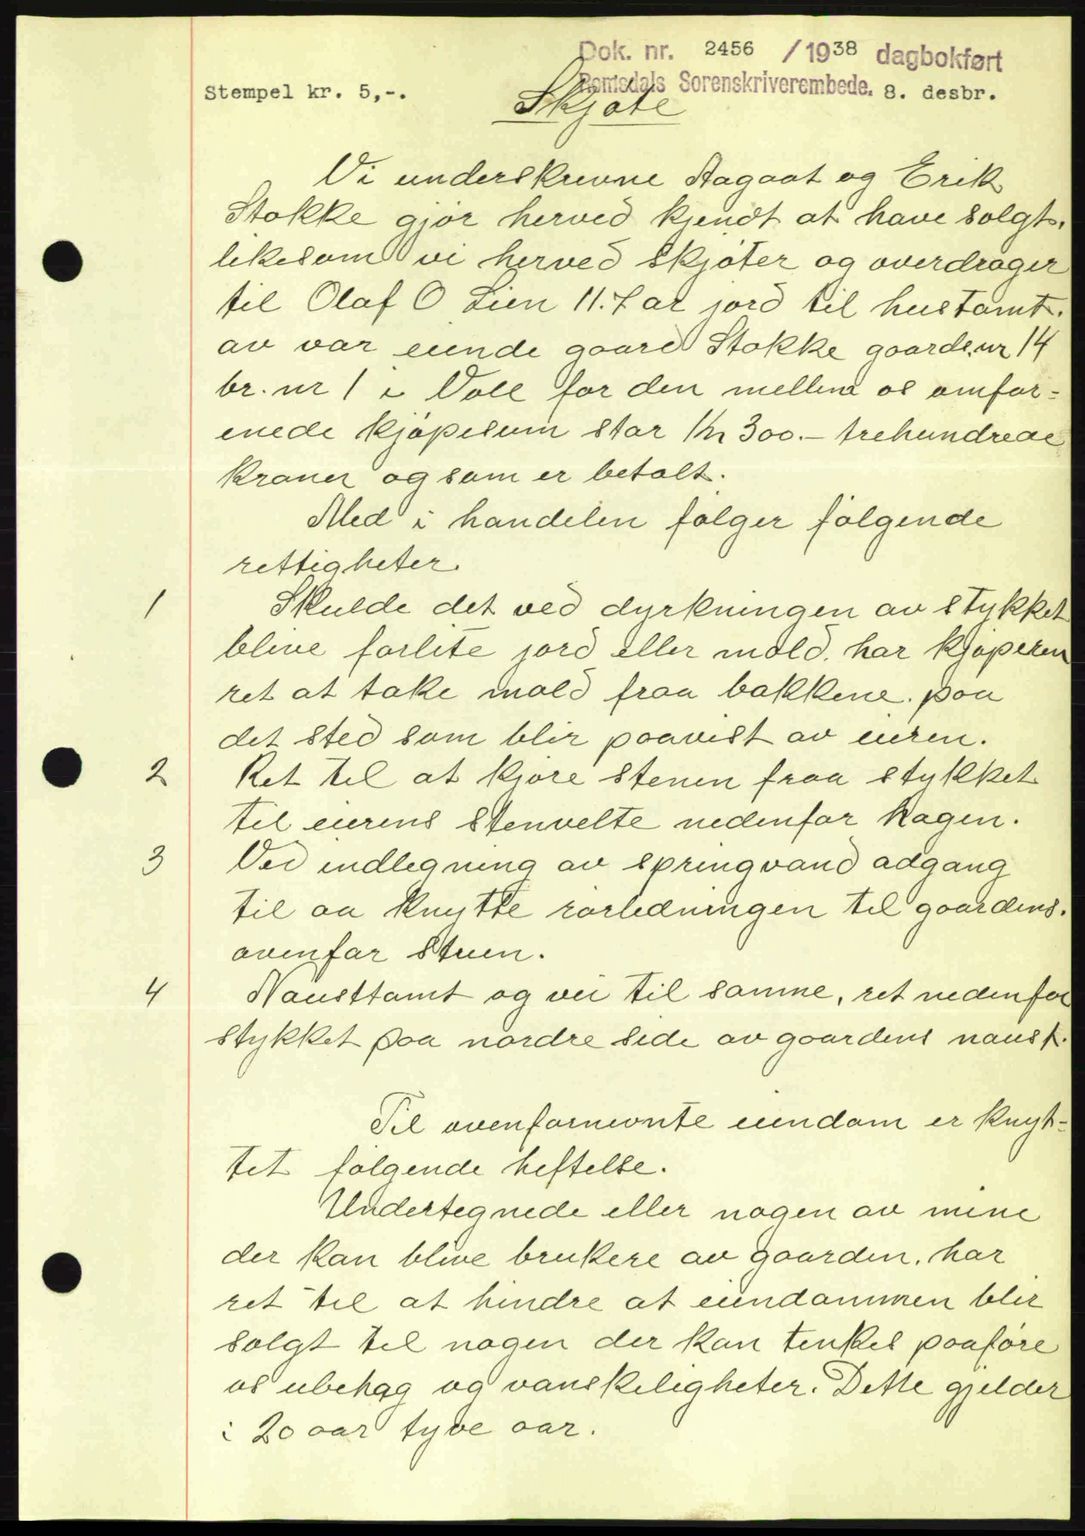 Dok. nr. 2456 /1938 dagbokført
Romsdals Sorenskriverembede. 8. desbr.
Stempel kr. 5,-.
Skjøte
Vi underskrevne Aagaat og Erik
Stokke gjør herved kjendt at have solgt,
likesom vi herved skjøter og overdrager
til Olaf O Lien 11.7 ar jord til hustomt.
av vor eiende gaard Stokke gaards.nr 14
br. nr 1 i Voll for den mellem os omfor-
enede kjøpesum stor Kr 300.- trehundrede
kroner og som er betalt.
Med i handelen følger følgende
rettigheter.
1 Skulde det ved dyrkningen av stykket
blive forlite jord eller mold. har kjøperen
ret at take mold fraa bakkene. paa
det sted som blir paavist av eieren.
2 Ret til at kjøre stenen fraa stykket
til eierens stenvelte nedenfor hagen.
3 Ved indlegning av springvand adgang
til aa knytte rørledningen til gaardens.
ovenfor stuen.
4 Nausttomt og vei til samme, ret nedenfor
stykket paa nordre side av gaardens naust.
Til ovenfornevnte eiendom er knyt-
tet følgende heftelse.
Undertegnede eller nogen av mine
der kan blive brukere av gaarden. har
ret til at hindre at eiendommen blir
solgt til nogen der kan tenkes paaføre
os ubehag og vanskeligheter. Dette gjelder
i 20 aar tyve aar.